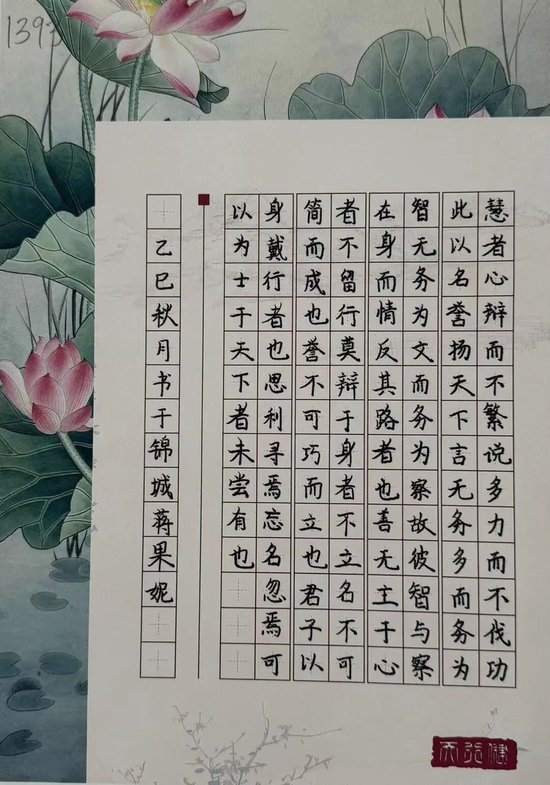 1393
慧者心辩而不繁说多力而不伐功
此以名誉扬天下言无务多而务为
智无务为文而务为察故彼智与察
在身而情反其路者也善无主于心
者不留行莫辩于身者不立名不可
简而成也誉不可巧而立也君子以
身戴行者也思利寻焉忘名忽焉可
以为士于天下者未尝有也
乙巳秋月书于锦城蒋果妮
天行健